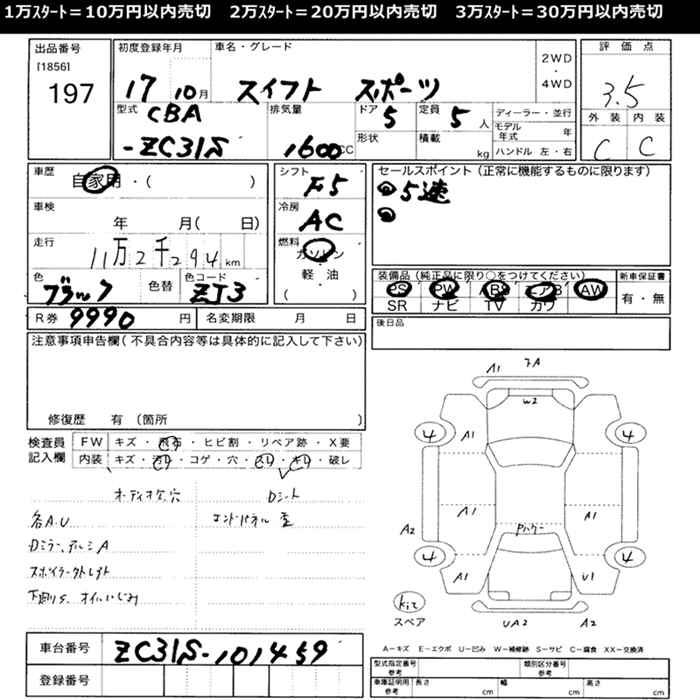 1万ｽﾀｰﾄ＝10万円以内売切　2万ｽﾀｰﾄ＝20万円以内売切　3万ｽﾀｰﾄ＝30万円以内売切
出品番号
[1856]
197
初度登録年月
17 10月
車名・グレード
スイフト スポーツ
2WD
・
4WD
評価点
3.5
外装 内装
C C
型式
CBA
-ZC31S
排気量
1600CC
ドア
5
定員
5人
形状
積載
kg
ディーラー・並行
モデル年式 年
ハンドル 左・右
車歴
自家用・( )
車検
年 月( 日)
走行
11万2千294km
色
ブラック
色替
色コード
ZJ3
シフト
F5
冷房
AC
燃料
ガソリン
・
軽・油
( )
セールスポイント(正常に機能するものに限ります)
5速
装備品(純正品に限り○をつけてください)
PS PW ABS エアB AW
SR ナビ TV カワ
新車保証書
有・無
R券 9990円
名変期限 月 日
後日品
注意事項申告欄(不具合内容等は具体的に記入して下さい)
修復歴 有 (箇所 )
検査員
記入欄
FW キズ・飛石・ヒビ割・リペア跡・X要
内装 キズ・汚レ・コゲ・穴・スレ・キレ・破レ
オーディオケ穴 Dシート
各A.U エンドパネル歪
Dミラー、アルミA
スポイラー外レ跡
下廻りS、オイルにじみ
A1
W2
4 A1 4
A1 A1
A2 Pハケー
4 A1 U1 4
kiz
スペア
UA2 A2
車台番号
ZC31S-101459
登録番号
A－キズ E－エクボ U－凹み W－補修跡 S－サビ C－腐食 XX－交換済
型式指定番号
参考
類別区分番号
参考
車庫証明用
参考
長さ cm 幅 cm 高さ cm